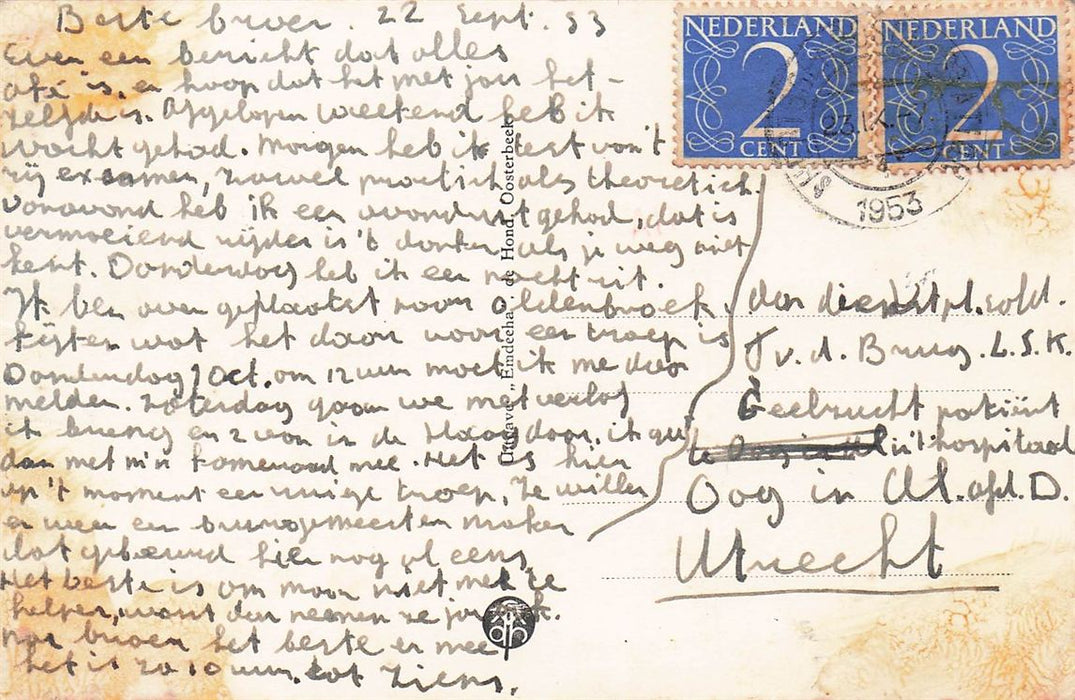 Beste broer. 22 Sept. 53
Even een bericht dat alles
oké is, en hoop dat het met jou het-
zelfde is. Afgelopen weekend heb ik
wacht gehad. Morgen heb ik test van 't
rij examen, zowel practisch als theoretisch.
Vanavond heb ik een avondrit gehad, dat is
vermoeiend rijden is 't donker, als je weg niet
kent. Donderdag heb ik een nachtrit.
Ik ben over geplaatst naar Oldenbroek.
kijken wat het daar voor een troep is
Donderdag 1 Oct. om 12 uur moet ik me daar
melden. Zaterdag gaan we met verlof
ik breng en 2 van in de Haag daar, ik ga
dan met m'n kameraad mee. Het is hier
op 't moment een troep, Ze willen
er weer een burgemeester maken
dat gebeurd hier nog al eens,
Het beste is om maar niet mee te
helpen, want dan nemen ze jou ook.
Nou broer het beste er mee
het is zo 10 uur. tot ziens.
NEDERLAND
2
CENT
NEDERLAND
2
CENT
23.IX.
1953
Uitgave „Eindecha", de Hond, Oosterbeek
dan dienstpl. sold.
J v. d. Brug. L.S.K.
Geelzucht patiënt
in 't hospitaal
Oog in Al. afd. D.
Utrecht